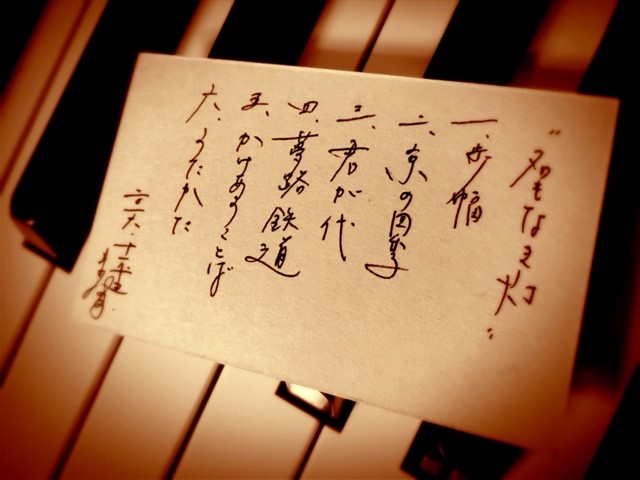 "名もなき灯"
一、歩幅
二、京の四季
三、君が代
四、夢路鉄道
五、かけあうことば
六、うたかた